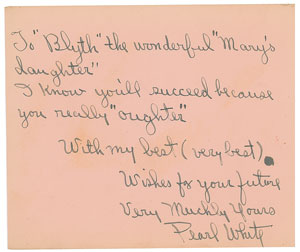 To "Blyth" the wonderful "Mary's
daughter"
I know you'll succeed because
you really "oughter"
With my best (very best)
Wishes for your future
Very Muchly Yours
Pearl White